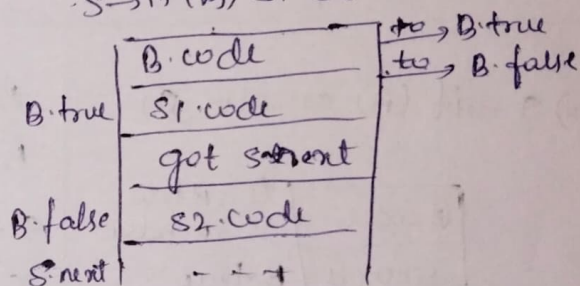 to → B.true
B.code
to → B.false
B.true S1.code
got S.next
B.false S2.code
S.next - - +